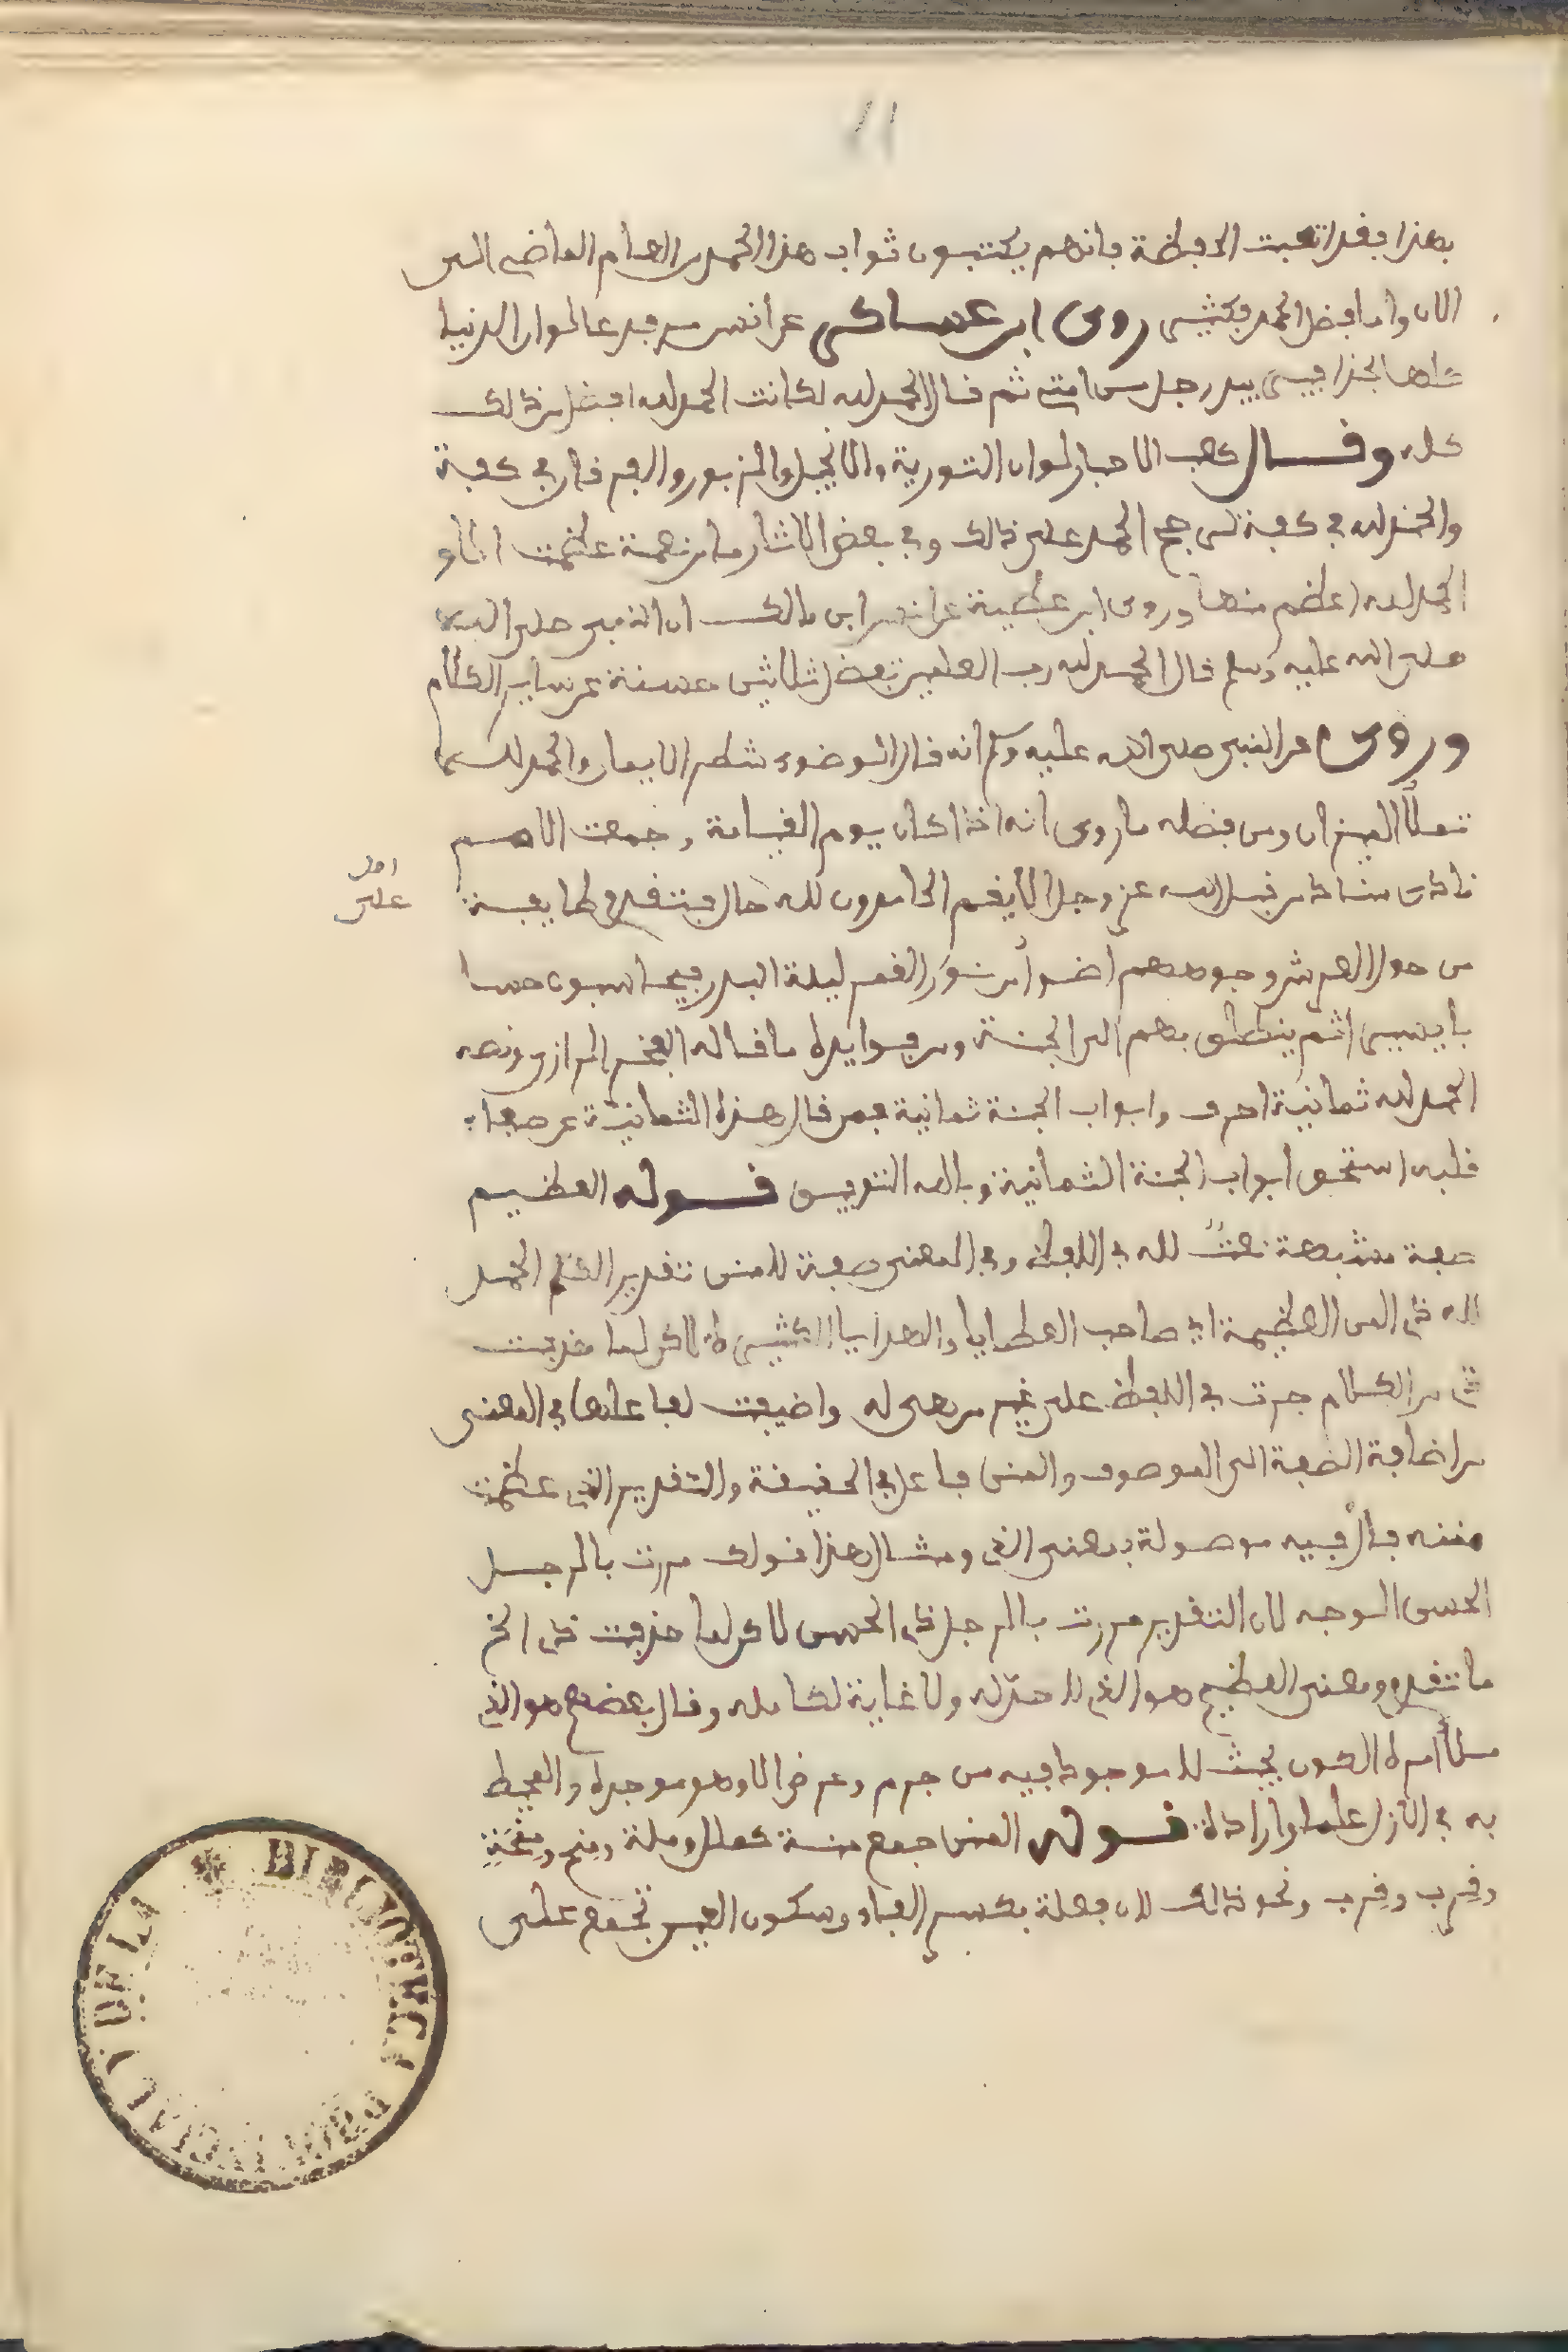 11
بهذا فقد اتعبت الحفظة فانهم يكتبون ثواب هذا الحمد من العام الماضي الى
الان واما فضل الحمد فكثير روى ابن عساكر عن انس مرفوعا لو ان الدنيا
كلها بحذافيرها بيد رجل من امتي ثم قال الحمد لله لكانت الحمد لله افضل من ذالك
كله وقال كعب الاحبار لو ان التورية والانجيل والزبور والفرقان في كفة
والحمد لله في كفة لرجح الحمد على ذالك وفي بعض الاثار ما من نعمة عظمت الا و
الحمد لله اعظم منها وروى ابن عطية عن انس ابن مالك ان النبي صلى الله
صلى الله عليه وسلم قال الحمد لله رب العلمين تفضل ثلاثين حسنة عن ساير الكلام
وروي عن النبي صلى الله عليه وسلم انه قال الوضوء شطر الايمان والحمد لله
تملأ الميزان ومن فضله ما روي انه اذا كان يوم القيامة وجمعت الامم
نادى مناد من قبل الله عز وجل الا ليقم الحامدون لله حال فتقدم طايفة
على
من حول العرش وجوههم اضوأ من نور القمر ليلة البدر فيحاسبون حسابا
يسيرا ثم ينطلق بهم الى الجنة ومن فوايده ما قاله الفخر الرازي ونصه
الحمد لله ثمانية احرف وابواب الجنة ثمانية فمن قال هذه الثمانية عن صفاء
قلبه استحق ابواب الجنة الثمانية وبالله التوفيق قوله العظيم
صفة مشبهة نعت لله في اللفظ وفي المعنى صفة للمنن تقدير الكلام الحمد
لله ذي المنن العظيمة اي صاحب العطايا والهدايا الكثيرة لاكن لما حذفت
من الكلام جرت في اللفظ على غير من هي له واضيفت لفاعلها في المعنى
من اضافة الصفة الى الموصوف والمنن فاعل في الحقيقة والتقدير الذي عظمت
مننه فأل فيه موصولة بمعنى الذي ومثال هذا قولك مررت بالرجل
الحسن الوجه لان التقدير مررت بالرجل ذي الحسن لاكن لما حذفت ذي الخ
ما تقدم ومعنى العظيم هو الذي لا حد له ولا غاية لكماله وقال بعضهم هو الذي
ملأ امره الكون بحيث لا موجود فيه من جرم وعرض الا وهو موجده والمحيط
به في الازل علما وارادة قوله المنن جمع منة كملل وملة ومنح ومنحة
وقرب ونحو ذالك لان فعلة بكسر الفاء وسكون العين تجمع على
BIBLIOTECA DE LA